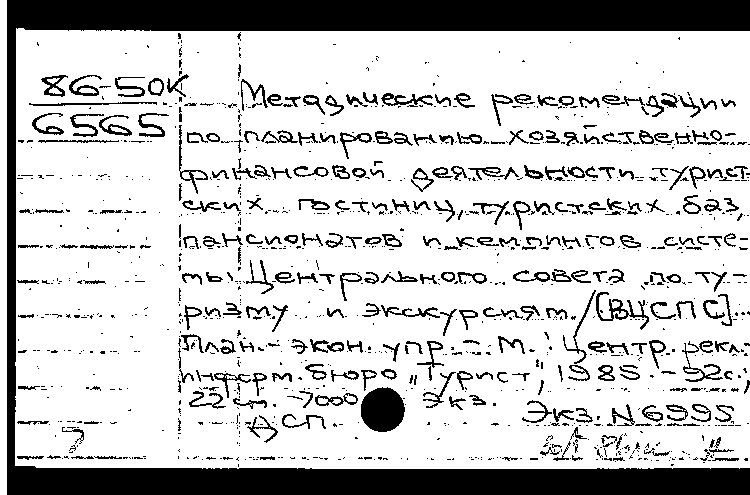 86-50К
6565
Методические рекомендации
по планированию хозяйственно-
финансовой деятельности турист-
ских гостиниц, туристских баз,
пансионатов и кемпингов систе-
мы Центрального совета по ту-
ризму и экскурсиям. / [ВЦСПС]...
План.- экон. упр. - М. : Центр. рекл.-
информ. бюро "Турист", 1985. - 92с.;
22 см. - 7000 экз.
ДСП.
Экз. N 6995